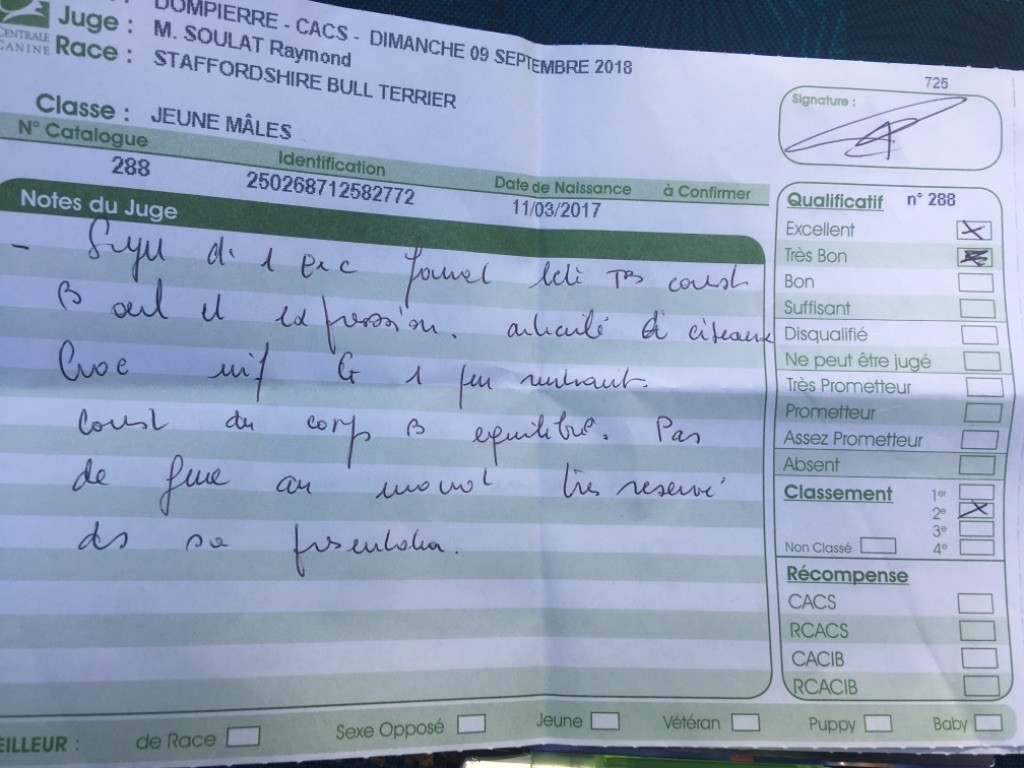 DOMPIERRE - CACS - DIMANCHE 09 SEPTEMBRE 2018
CENTRALE
CANINE
Juge : M. SOULAT Raymond
Race : STAFFORDSHIRE BULL TERRIER
Classe : JEUNE MÂLES
725
Signature :
N° Catalogue Identification Date de Naissance à Confirmer
288 250268712582772 11/03/2017
Notes du Juge
- Sujet d' 1 format TB const
B oeil et expression. articulé ciseaux
Croc inf G 1 peu rentrant.
const du corps B equilibré. Pas
de au très reservé
ds sa presentation.
Qualificatif n° 288
Excellent
Très Bon
Bon
Suffisant
Disqualifié
Ne peut être jugé
Très Prometteur
Prometteur
Assez Prometteur
Absent
Classement 1er
2e
3e
Non Classé 4e
Récompense
CACS
RCACS
CACIB
RCACIB
EILLEUR : de Race Sexe Opposé Jeune Vétéran Puppy Baby